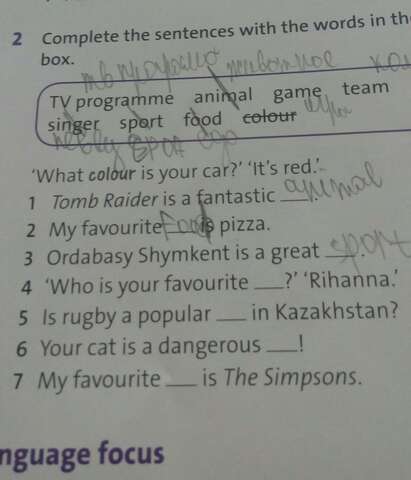 2 Complete the sentences with the words in th
box.
TV programme animal game team
singer sport food colour
'What colour is your car?' 'It's red.'
1 Tomb Raider is a fantastic ___. animal
2 My favourite food is pizza.
3 Ordabasy Shymkent is a great ___. sport
4 'Who is your favourite ___?' 'Rihanna.'
5 Is rugby a popular ___ in Kazakhstan?
6 Your cat is a dangerous ___!
7 My favourite ___ is The Simpsons.
nguage focus